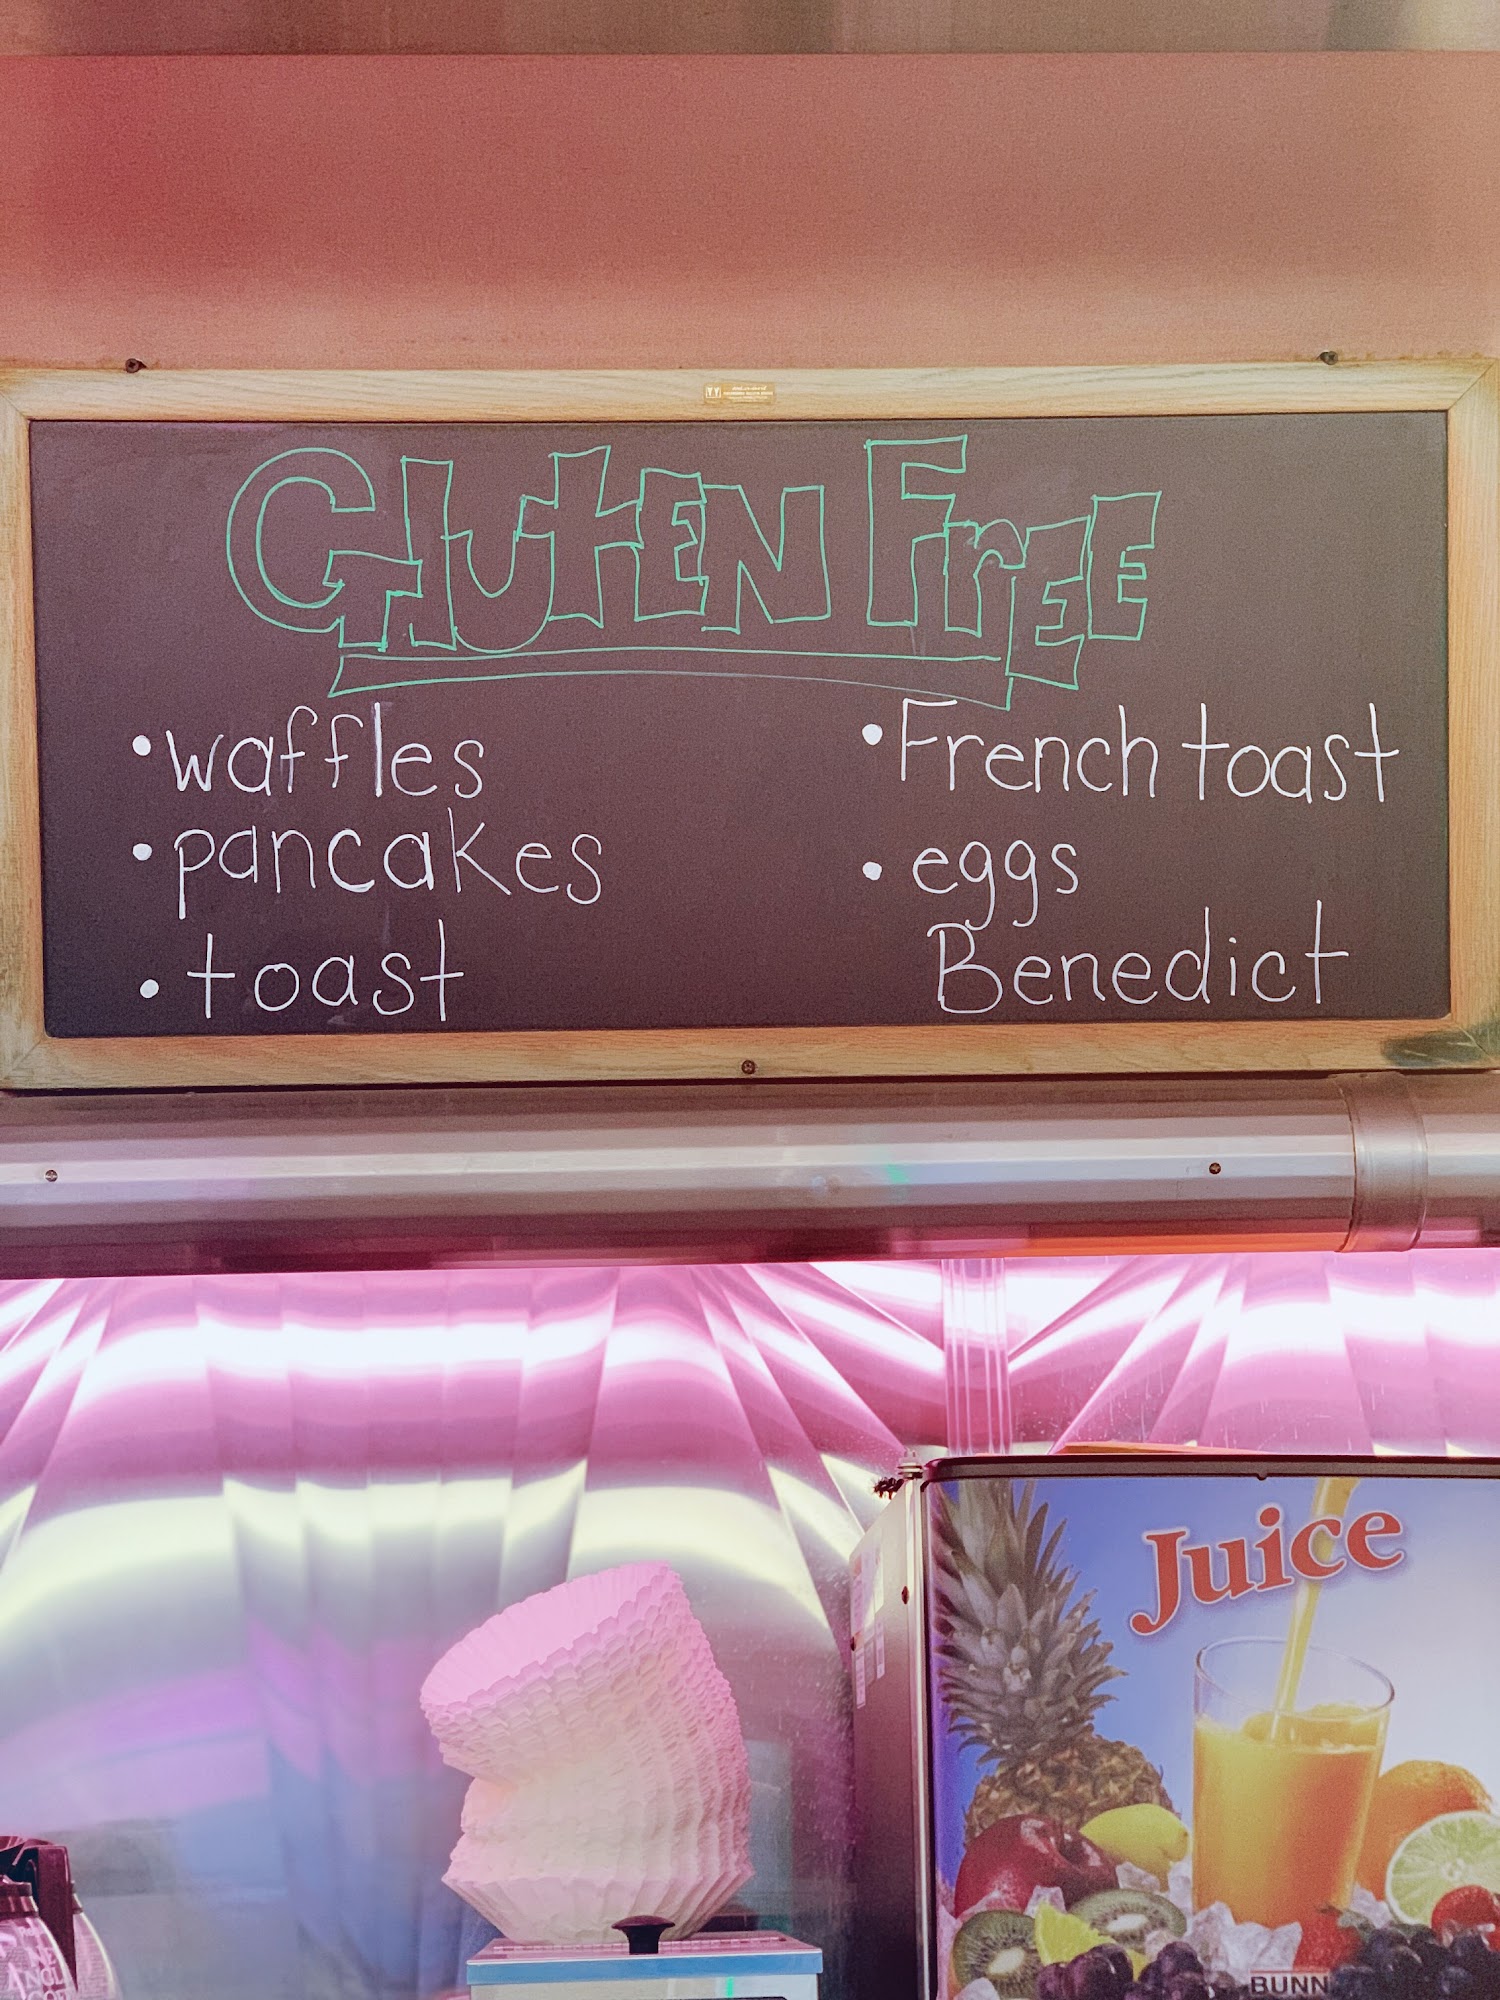 Gluten Free
• waffles
• pancakes
• toast
• French toast
• eggs
Benedict
Juice
BUNN